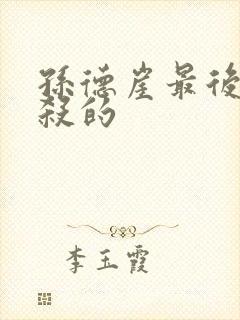 孫德崖最後
殺的
李玉霞